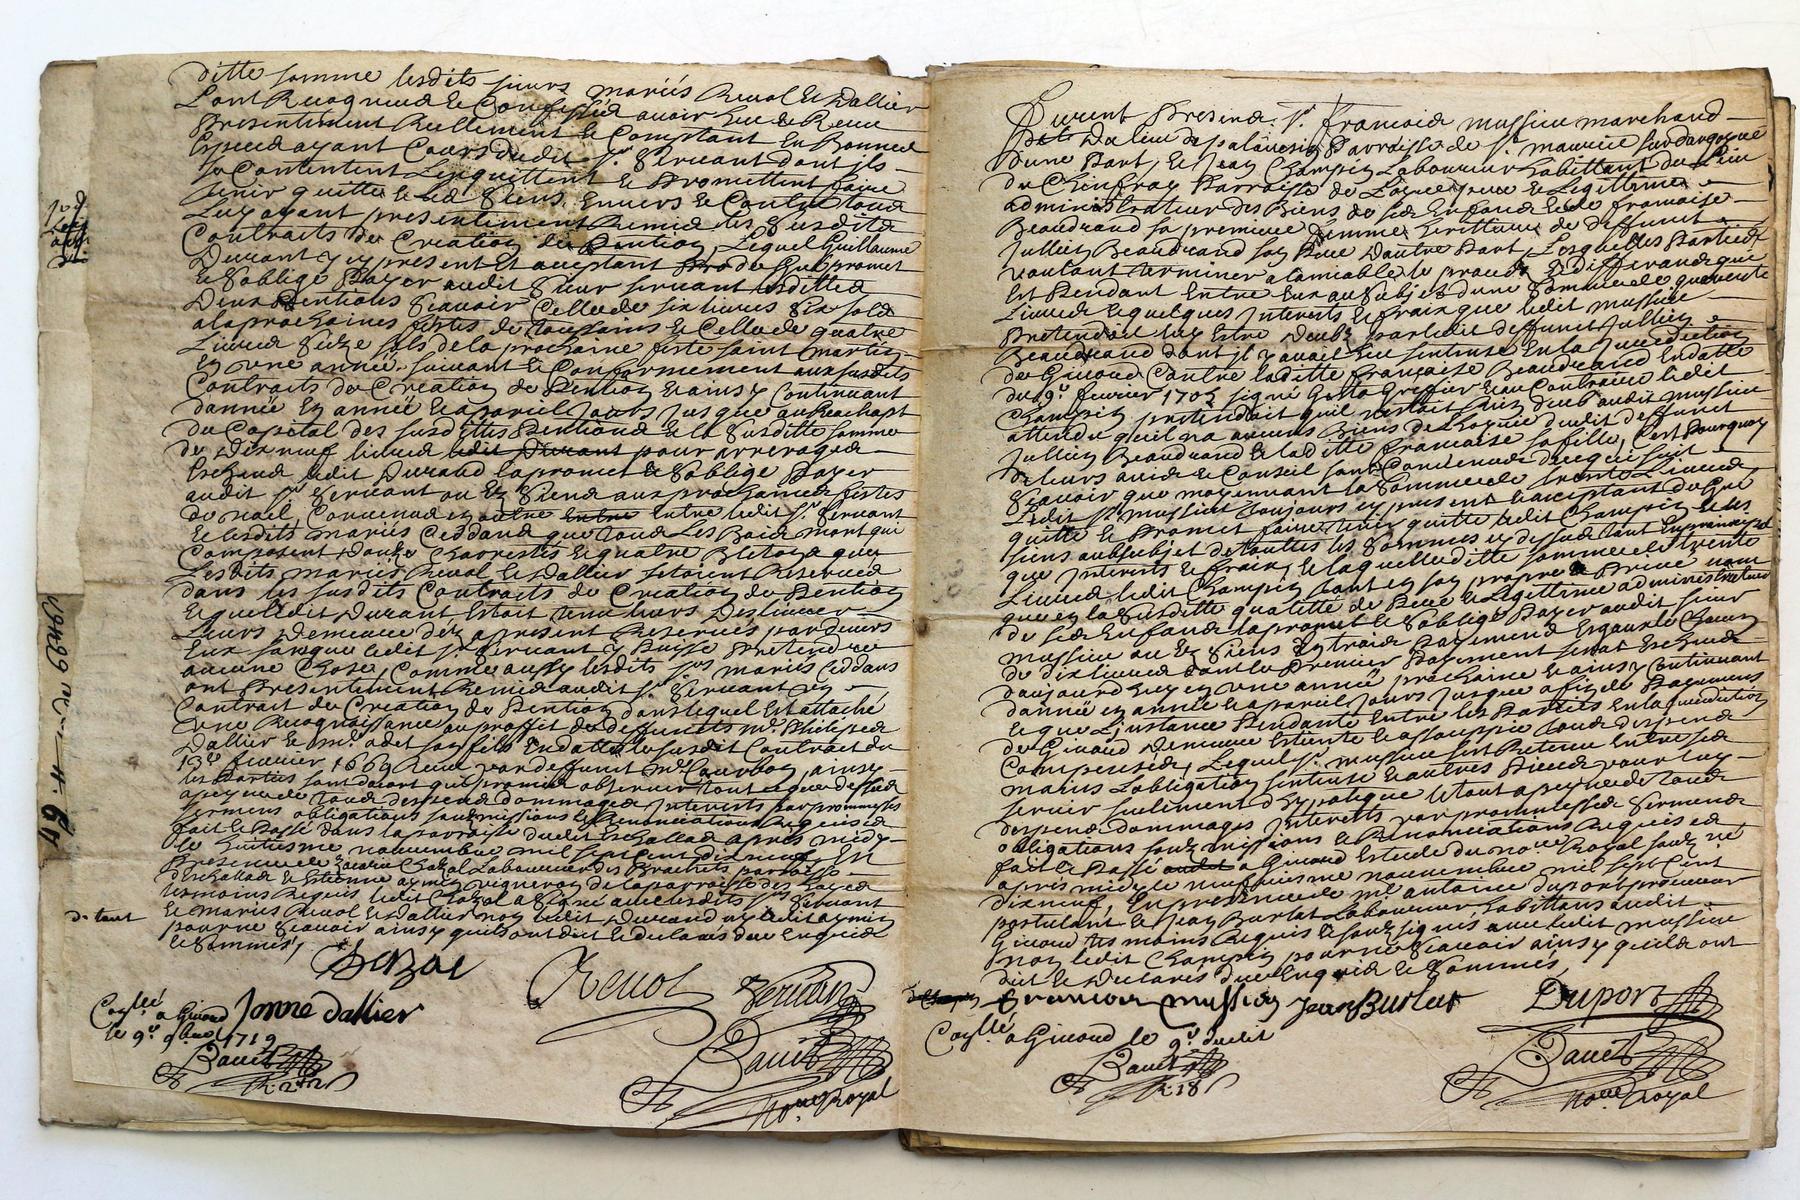 ditte somme lesdits sieurs mariés Revol et Dallier
l'ont Recogneue et Confessée avoir eue et Receu
presentement Reellement et Comptant en Bonnes
Especes ayant Cours dudit Sr Servant dont ils
se Contentent Len quittent et Promettent faire
tenir quitte et les siens envers et Contre tous
Luy ayant presentement Remis les susdits
Contracts de Creation de Pention Lequel Guillaume
Durant icy present et acceptant de Gré promet
et soblige Payer audit Sieur servant lesdittes
Deux Pentions sçavoir Celle de six livres six sols
a la prochaines festes de Toussains et Celle de quatre
Livres seize sols de la prochaine feste saint martin
en une année suivant et Conformement aux susdits
Contracts de Creation de Pention et ainsy Continuant
dannée en année et a pareil Jours Jusque au Reachapt
du Capital des susdittes Pentions et la susditte somme
de Dix neuf livres ledit Durant pour arrerages
Escheus ledit Durand la promet et soblige Payer
audit Sr Servant ou es siens aux prochaines festes
de noel Convenus en outre entre entre ledit Sr Servant
et lesdits mariés Ceddans que tous Les Bois mort qui
Composent douze Charrettées et quatre
Lesdits mariés Revol et Dallier setoient Reservés
dans les susdits Contracts de Creation de Pention
et que ledit Durant Estoit tenu
Leurs Demeure dez apresent Reservés pardevers
Eux sans que ledit Sr Servant y Puisse Pretendre
aucune Chose Comme aussy lesdits srs mariés Ceddans
ont Presentement Remis audit Sr Servant un
Contract de Creation de Pention dans lequel Est attaché
Une Recognoissance au proffit de deffunts mr Philipes
Dallier et mr odet son fils En datte le susdit Contract du
13e fevrier 1669 Receu par deffunt me Courbon, ainsy
les Parties sont d'acort que promis observer tout ce que dessus
a peyne de tous despens dommages Interests par promesses
sermens obligations soumissions et Renonciations Requises
fait et Passé dans la parroisse dudit Eschallas apres midy
le huitiesme novembre mil sept cent dix neuf En
Presence de Chazal Laboureur des Brachets parroisse
d'eschallas et Estienne aymin vigneron de la parroisse des hayes
tesmoins Requis ledit Chazal a signé avec lesdits srs Servant
de tant
et mariés Revol et Dallier non ledit Durand ny ledit aymin
pour ne sçavoir ainsy quils ont dit et declarés de ce Enquis
et Sommés
Chazal
Revol
Servant
Janne dallier
Coñllé a Givord
le 9e 9bre 1719
Bauet
R. 2tt 2
Bauet
noire Royal
N 489 41. 64
Furent Presens Sr francois mussieu marchand
du lieu de parroisse de St maurice sur dargoyre
dune Part, et Jean Champin Laboureur habittant du lieu
du Chinfray Parroisse de Pere et Legittime
administrateur des Biens de ses Enfans et de francoise
Beaudrand sa premiere femme heritiere de deffunct
Jullien Beaudrand son Pere Dautre Part, Lesquelles Parties
voulant terminer a lamiable le procés et differands qui
Est Pendant Entre Eux au subjet dune Somme de quarente
Livres et quelques Interests et frais que ledit mussieu
Pretendoit luy Estre deubz par ledit deffunct Jullien
Beaudrand dont il y avoit Eue sentense En la Jurediction
de Givord Contre laditte francoise Beaudrand En datte
du 19e fevrier 1703 signé Greffier et au Contraire ledit
Champin pretendoit quil nestoit Rien deub audit mussieu
attendu quil na aucuns Biens de l'hoyrie dudit deffunct
Jullien Beaudrand et laditte francoise sa fille, C'est Pourquoy
de leurs avis et Conseil sont Convenus de ce qui suit
Sçavoir que moyennant la Somme de trente Livres
Ledit Sr mussieu Toujours icy present et acceptant de Gré
quitte et Promet faire tenir quitte ledit Champin et les
siens au subjet de toutes les Sommes cy dessus tant en principal
que Interests et frais, et laquelle ditte somme de trente
Livres ledit Champin tant en son propre et Privé nom
que en la Susditte qualitté de Pere et Legittime administrateur
de ses Enfans la promet et soblige Payer audit sieur
mussieu ou es siens En trois Payemens Esgaux Chacun
de dix Livres dont le Premier Payement serat Escheus
daujourdhuy en une année prochaine et ainsy Continuant
dannée en année et a pareil Jours Jusque a fin de Payemens
et que Linstance Pendante Entre les Parties En la Jurediction
de Givord Demeure Esteinte et assouppie tous despens
Compensés, Lequel Sr mussieu sest Retenu Entre ses
mains Lobligation sentense et autres Pieces pour luy
servir seulement d'hypoteque le tout a peyne de tous
despens dommages Interests par promesses Sermens
obligations soumissions et Renonciations Requises
fait et Passé a Givord Estude du nore Royal soubzné
apres midy le neufviesme novembre mil sept Cent
dix neuf, En presence de me antoine duport procureur
postulant et Jean Burlat Laboureur habittans audit
Givord tesmoins Requis et soubzsignés avec ledit mussieu
non ledit Champin pour ne sçavoir ainsy quils ont
dit et declarés de ce Enquis et Sommés
francois mussieu Jean Burlat
Duport
Coñllé a Givord le 9e dudit
Bauet
R. 18
Bauet
noire Royal